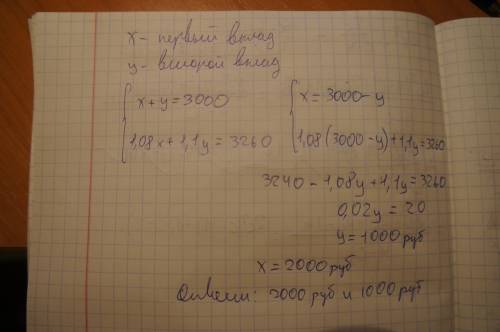 x - первый вклад
y - второй вклад
x + y = 3000
1,08x + 1,1y = 3260
x = 3000 - y
1,08(3000 - y) + 1,1y = 3260
3240 - 1,08y + 1,1y = 3260
0,02y = 20
y = 1000 руб
x = 2000 руб
Ответ: 2000 руб и 1000 руб